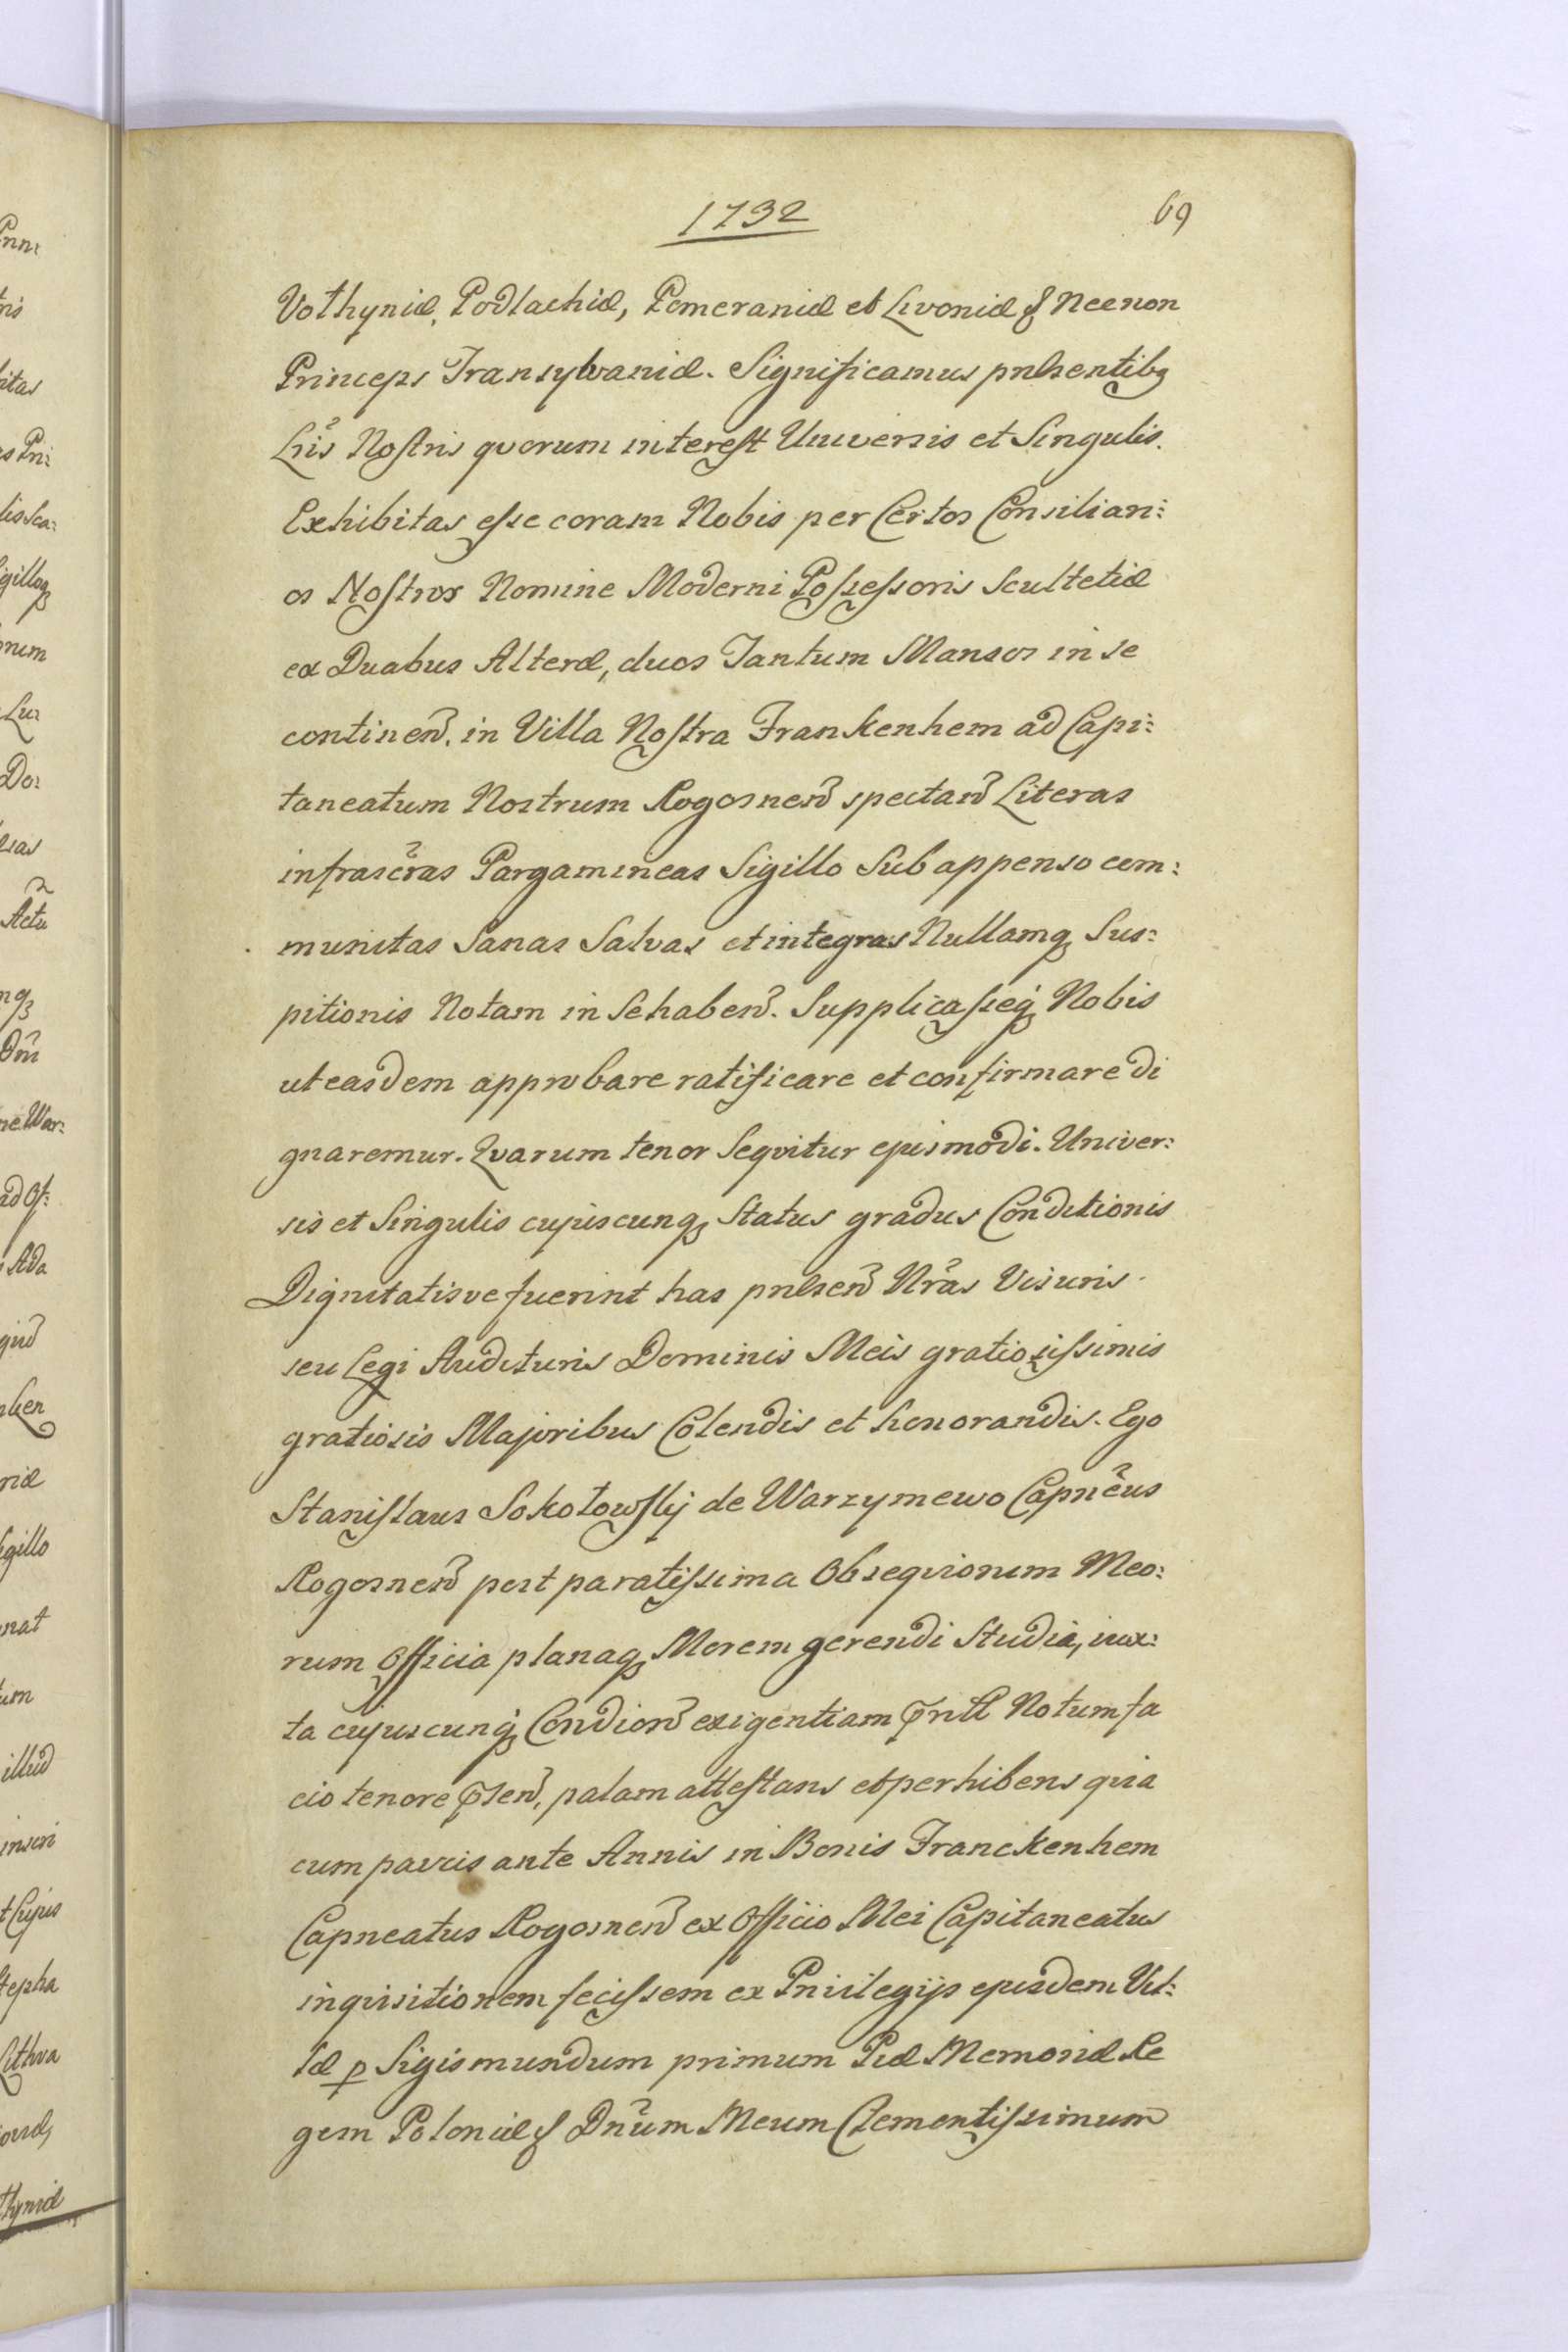 1732
69
Vołhyniæ, Podlachiæ, Pomeraniæ et Livoniæ & Necnon
Princeps Transylvaniæ. Significamus pnlsentibꝫ
Lrĩs Nostris qvorum interest Universis et Singulis.
Exhibitas esse coram Nobis per Certos Consiliari:
os Nostros Nomine Moderni Possessoris Scultetiæ
ex Duabus Alteræ, duos Tantum Mansos in se
continen̄. in Villa Nostra Frankenhem ad Capi:
taneatum Nostrum Rogosnen̄ spectan̄ Literas
infrascr̃as Pargamineas Sigillo Sub appenso com:
munitas Sanas Salvas et integras Nullamq̨ Sus:
pitionis Notam in Se haben̄. Supplicasseq̨ Nobis
ut easdem approbare ratificare et confirmare di
gnaremur. Qvarum tenor Seqvitur ejusmodi. Univer:
sis et Singulis cujuscunq̨ Status gradus Conditionis
Dignitatisve fuerint has pnlsen̄ Nr̃as Visuris.
seu Legi Audituris Dominis Meis gratiosissimis
gratiosis Majoribus Colendis et honorandis. Ego
Stanislaus Sokołowskij de Warzymewo Capnẽus
Rogosnen̄ post paratissima Obseqviorum Meo:
rum Officia planaq̨ Morem gerendi Studia, iux:
ta cujuscunq̨ Condion̄ exigentiam Notum fa
cio tenore p̄sen̄, palam attestans et perhibens qvia
cum paucis ante Annis in Bonis Franckenhem
Capneatus Rogosnen̄ ex Officio Mei Capitaneatus
inqvisitionem fecissem ex Privilegijs ejusdem Vil:
læ p Sigismundum primum Piæ Memoriæ Re
gem Poloniæ & Dnũm Meum Clementissimum